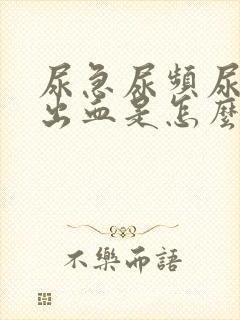 尿急尿頻尿
出血是怎麼
不樂而語